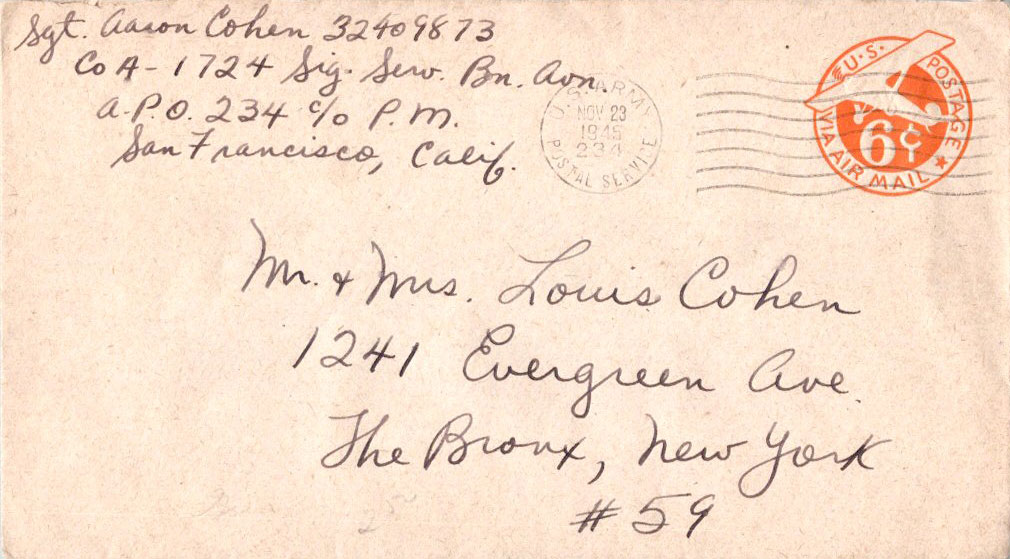 Sgt. Aaron Cohen 32409873
Co A - 1724 Sig. Serv. Bn. Avn
A.P.O. 234 c/o P.M.
San Francisco, Calif.
U.S. ARMY
NOV 23
1945
234
POSTAL SERVICE
U.S. POSTAGE
6¢
VIA AIR MAIL
Mr. & Mrs. Louis Cohen
1241 Evergreen Ave.
The Bronx, New York
#59